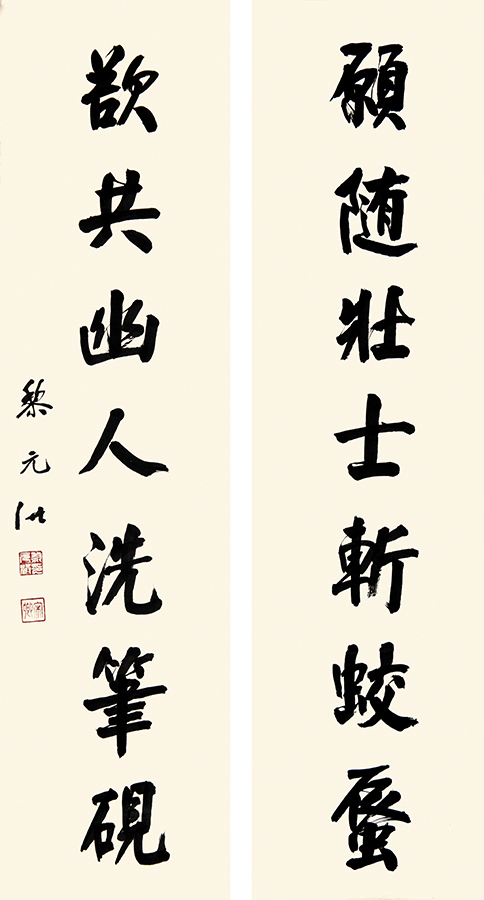 願随壯士斬蛟蜃
欲共幽人洗筆硯
黎元洪